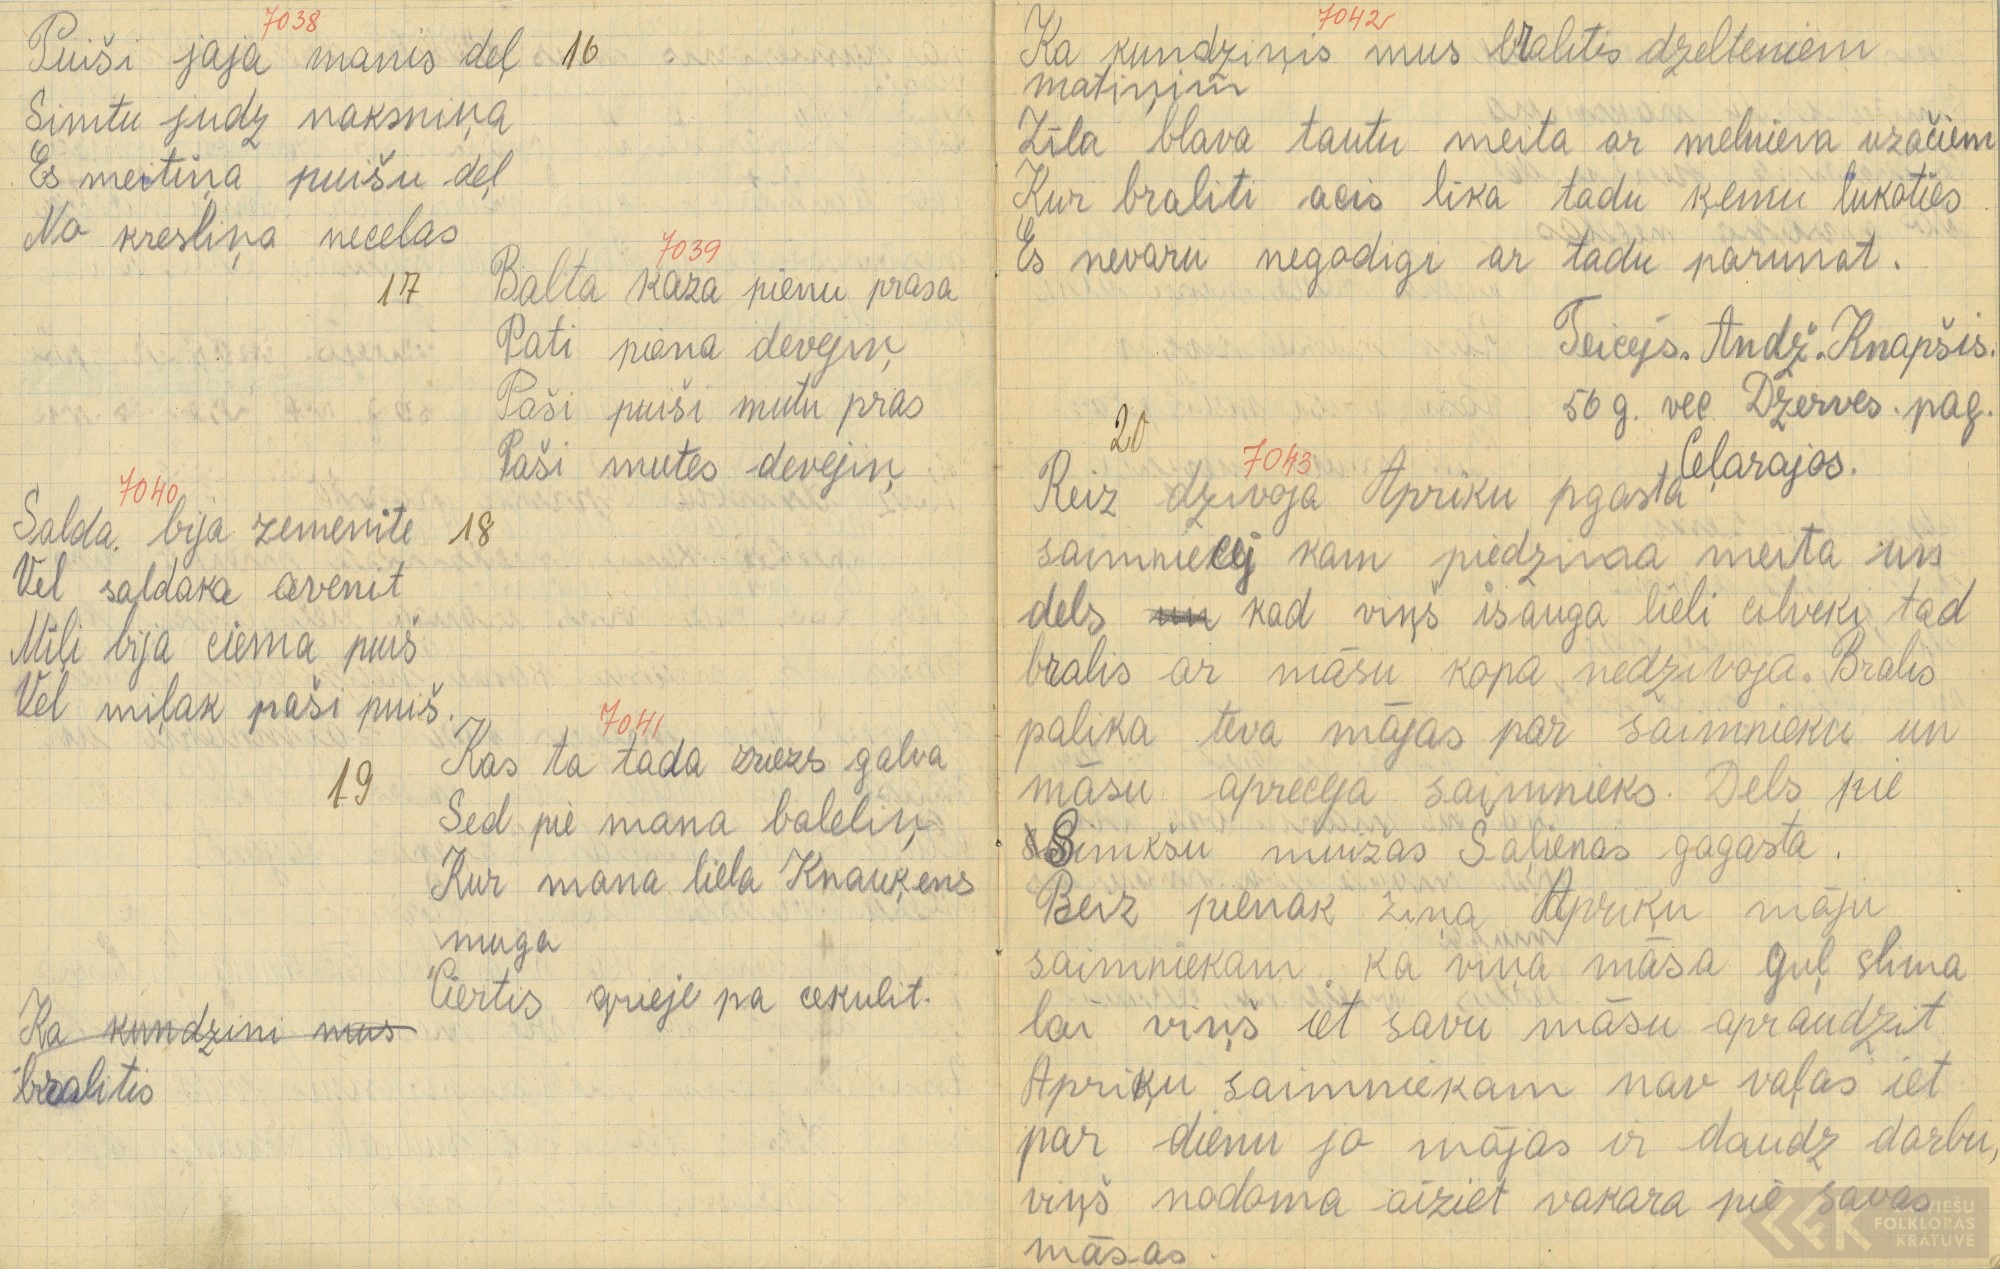 7038
Puiši jaja manis deļ 16
Simtu judz naksniņa
Es meitiņa puišu deļ
No kresliņa necelas
7039
17 Balta kaza pienu prasa
Pati piena devejiņ
Paši puiši mutu pras
Paši mutes devejiņ
7040
Salda bija zemenite 18
Vel saldaka avenit
Mīļi bija ciema puiš
Vel miļak paši puiš.
7041
19 Kas ta tada zriezs galva
Sed pie mana baleliņ
Kur mana liela Knauķens
muga
Ciertis grieje pa cekulit.
Ka kundzini mus
bralitis
7042
Ka kundziņis mus bralitis dzelteniem
matiņim
Zīla blava tautu meita ar melniem uzačiem
Kur braliti acis lika tadu ķemu lukoties
Es nevaru negodigi ar tadu parunat.
Teicējs. Andž. Knapšis.
56 g. vec Dzerves. pag.
Ceļarajos.
20
7043
Reiz dzivoja Apriku pgasta
saimniecej kam piedzimaa meita un
dels un kad viņš isauga lieli cilveki tad
bralis ar māsu kopa nedzivoja. Bralis
palika teva mājas par saimnieku un
māsu apreceja saimnieks. Dels pie
Simkšu muižas Saļienas gagasta.
Reiz pienak ziņa Apriķu māju
saimniekam ka viņa māsa guļ slima
lai viņš iet savu māsu apraudzit
Apriķu saimniekam nav vaļas iet
par dienu jo mājas ir daudz darbu,
viņš nodoma aiziet vakara pie savas
māsas.
LATVIEŠU
FOLKLORAS
KRĀTUVE